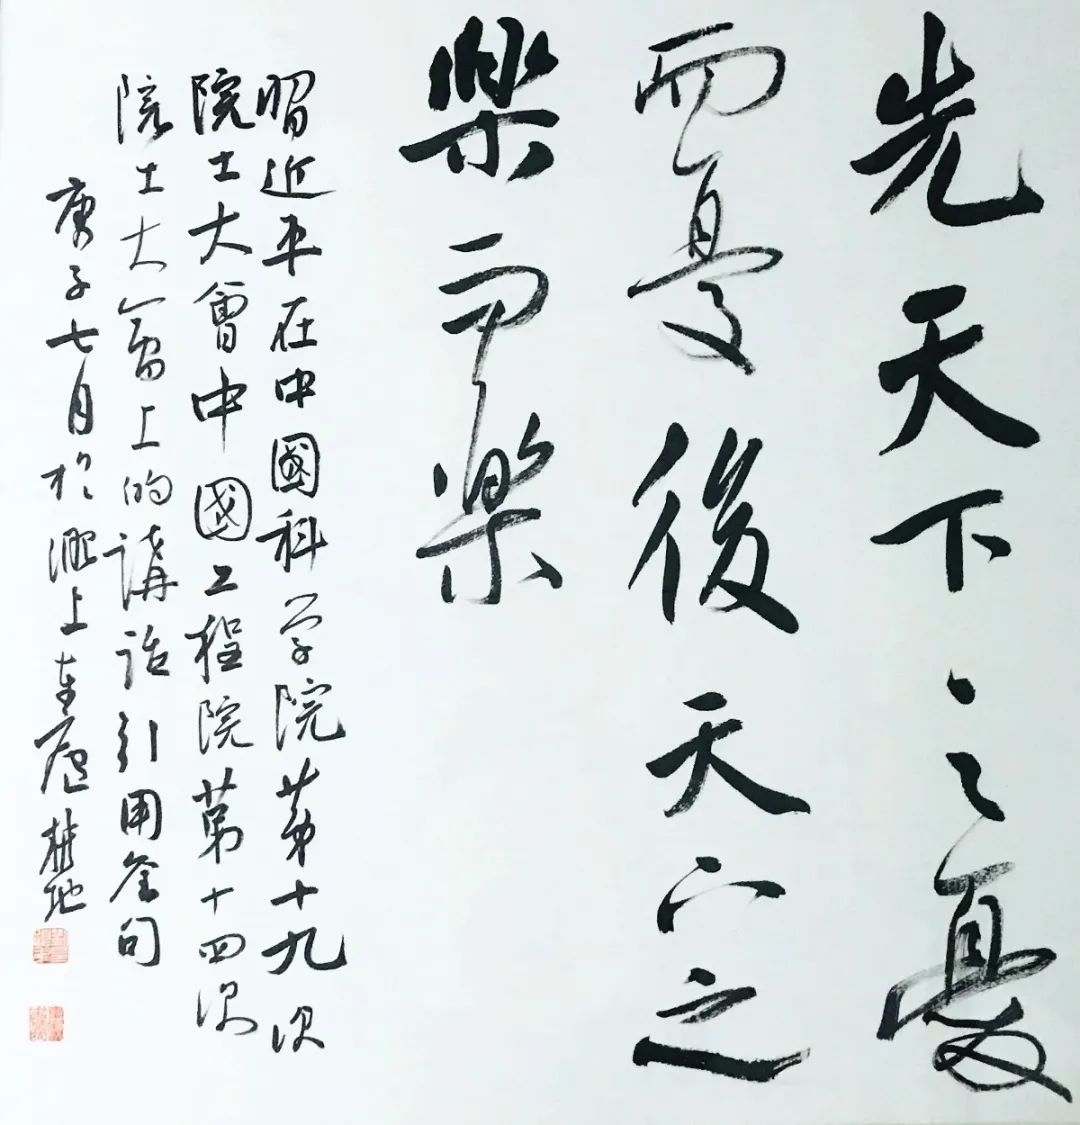 先天下之憂
而憂後天下之
樂而樂
習近平在中國科学院第十九次
院士大會中國工程院第十四次
院士大會上的講話引用金句
庚子七月於 上 廬